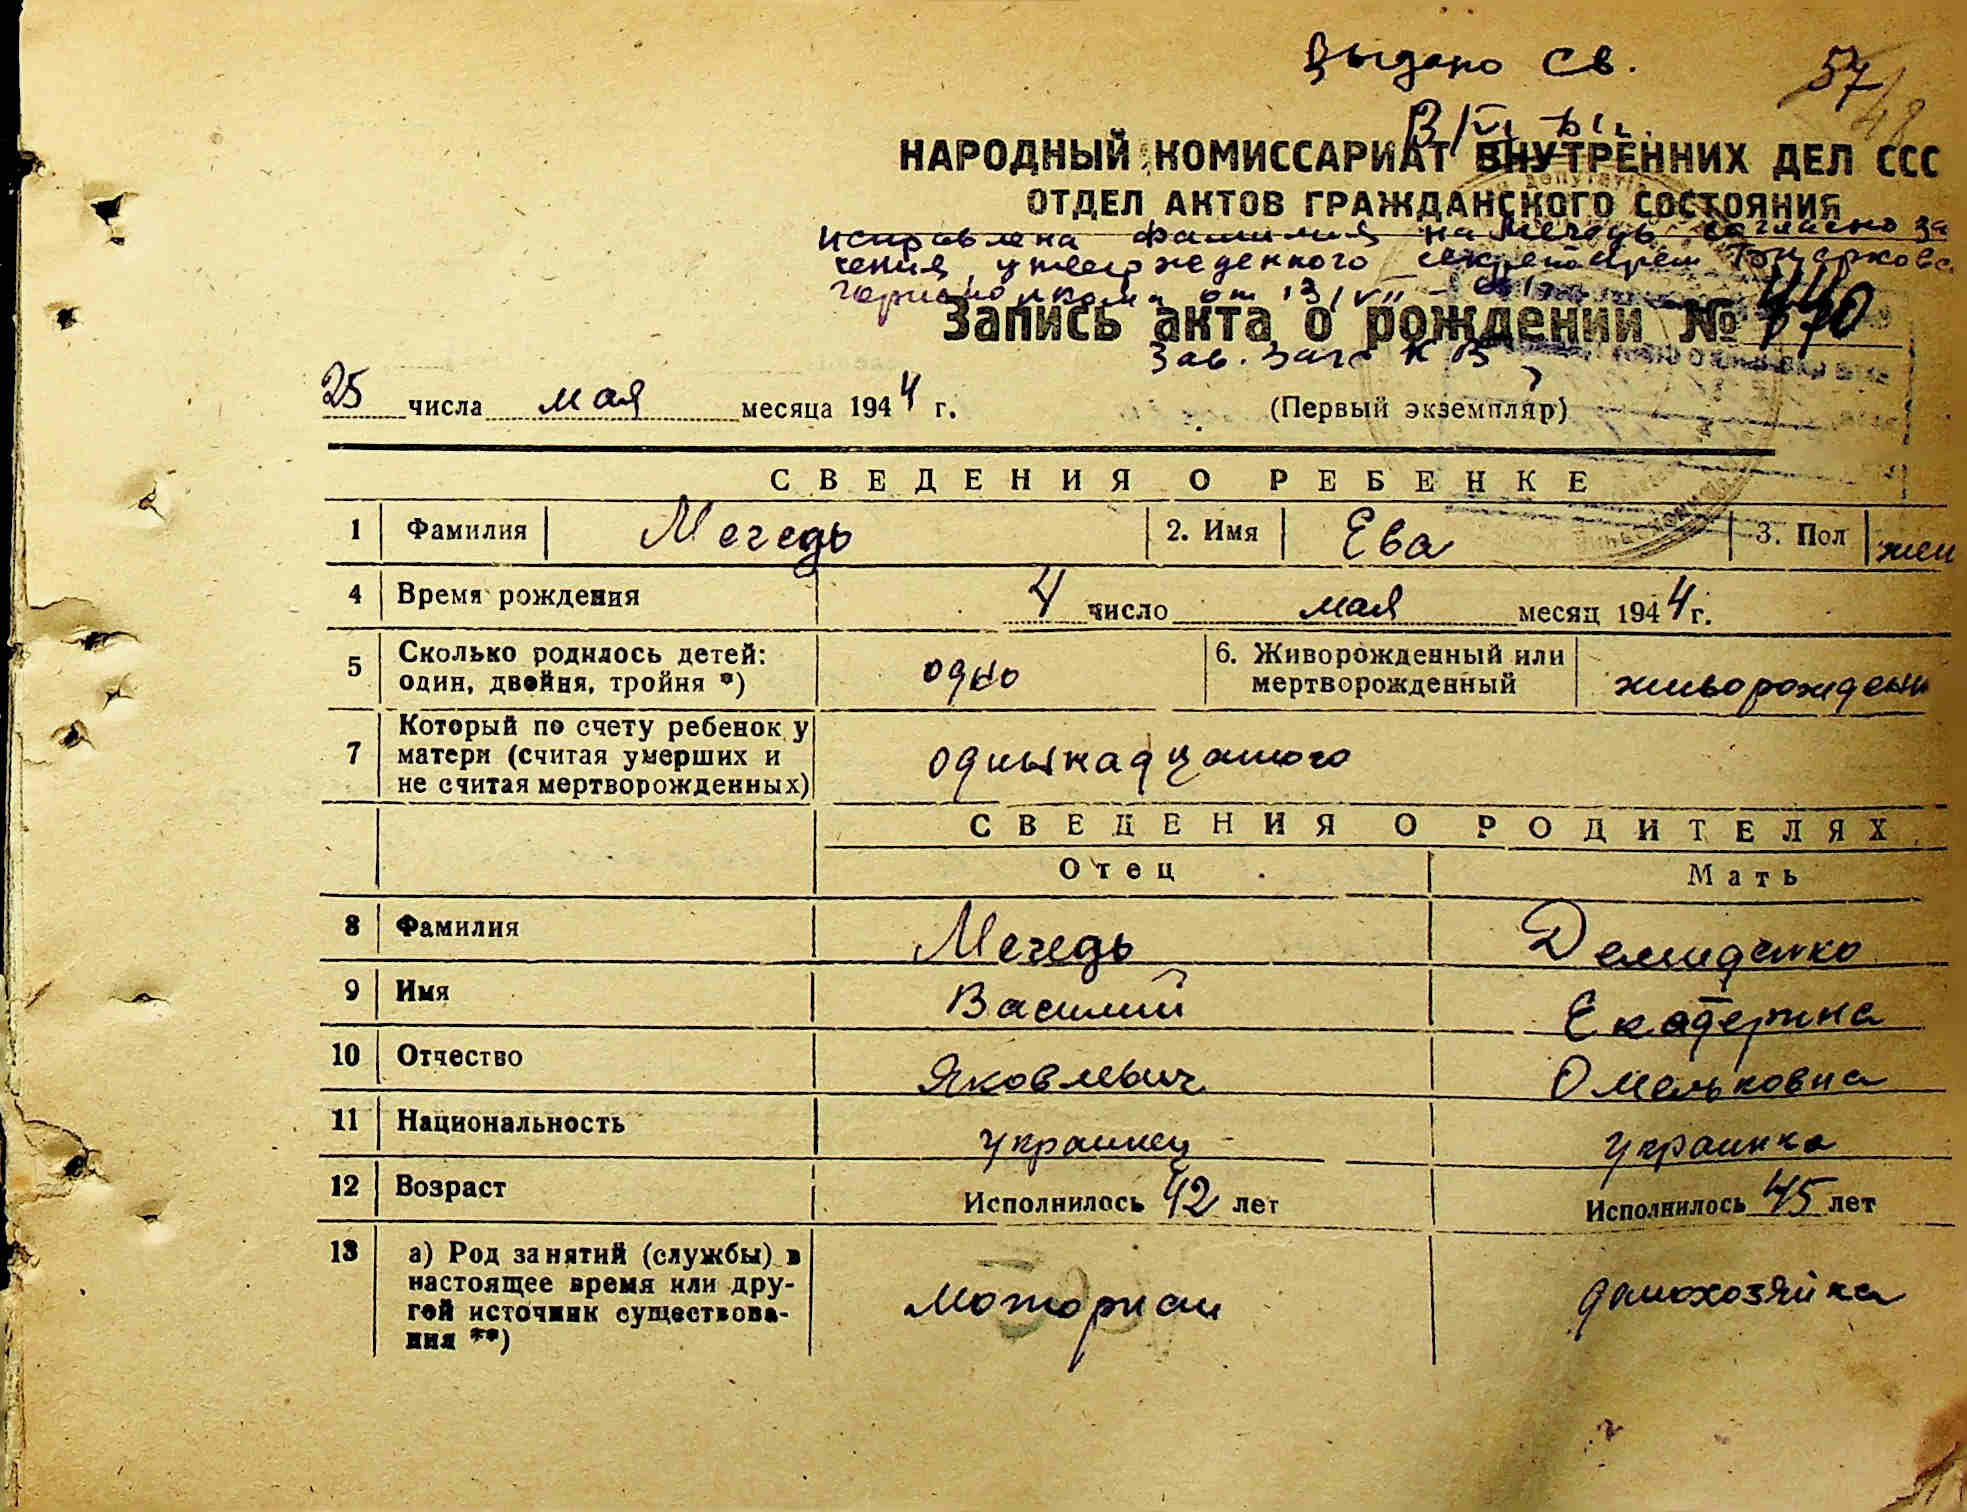 Выдано Св.
57
48
НАРОДНЫЙ КОМИССАРИАТ ВНУТРЕННИХ ДЕЛ ССС
ОТДЕЛ АКТОВ ГРАЖДАНСКОГО СОСТОЯНИЯ
исправлена фамилия на Мечедь согласно за
чения, утвержденного секретарем
от 13/VII -
Запись акта о рождении № 440
Зав. Загс
25 числа мая месяца 1944 г. (Первый экземпляр)
СВЕДЕНИЯ О РЕБЕНКЕ
1 Фамилия Мечедь 2. Имя Ева 3. Пол жен
4 Время рождения 4 число мая месяц 1944 г.
5 Сколько родилось детей: один, двойня, тройня *) одно 6. Живорожденный или мертворожденный живорожденн
7 Который по счету ребенок у
матери (считая умерших и одныкадцатого
не считая мертворожденных)
СВЕДЕНИЯ О РОДИТЕЛЯХ
Отец Мать
8 Фамилия Мечедь Демиденко
9 Имя Василий Екатерина
10 Отчество Яковлевич Омельковна
11 Национальность украинец украинка
12 Возраст Исполнилось 42 лет Исполнилось 45 лет
13 а) Род занятий (службы) в
настоящее время или дру-
гой источник существова- моторист домохозяйка
ния **)